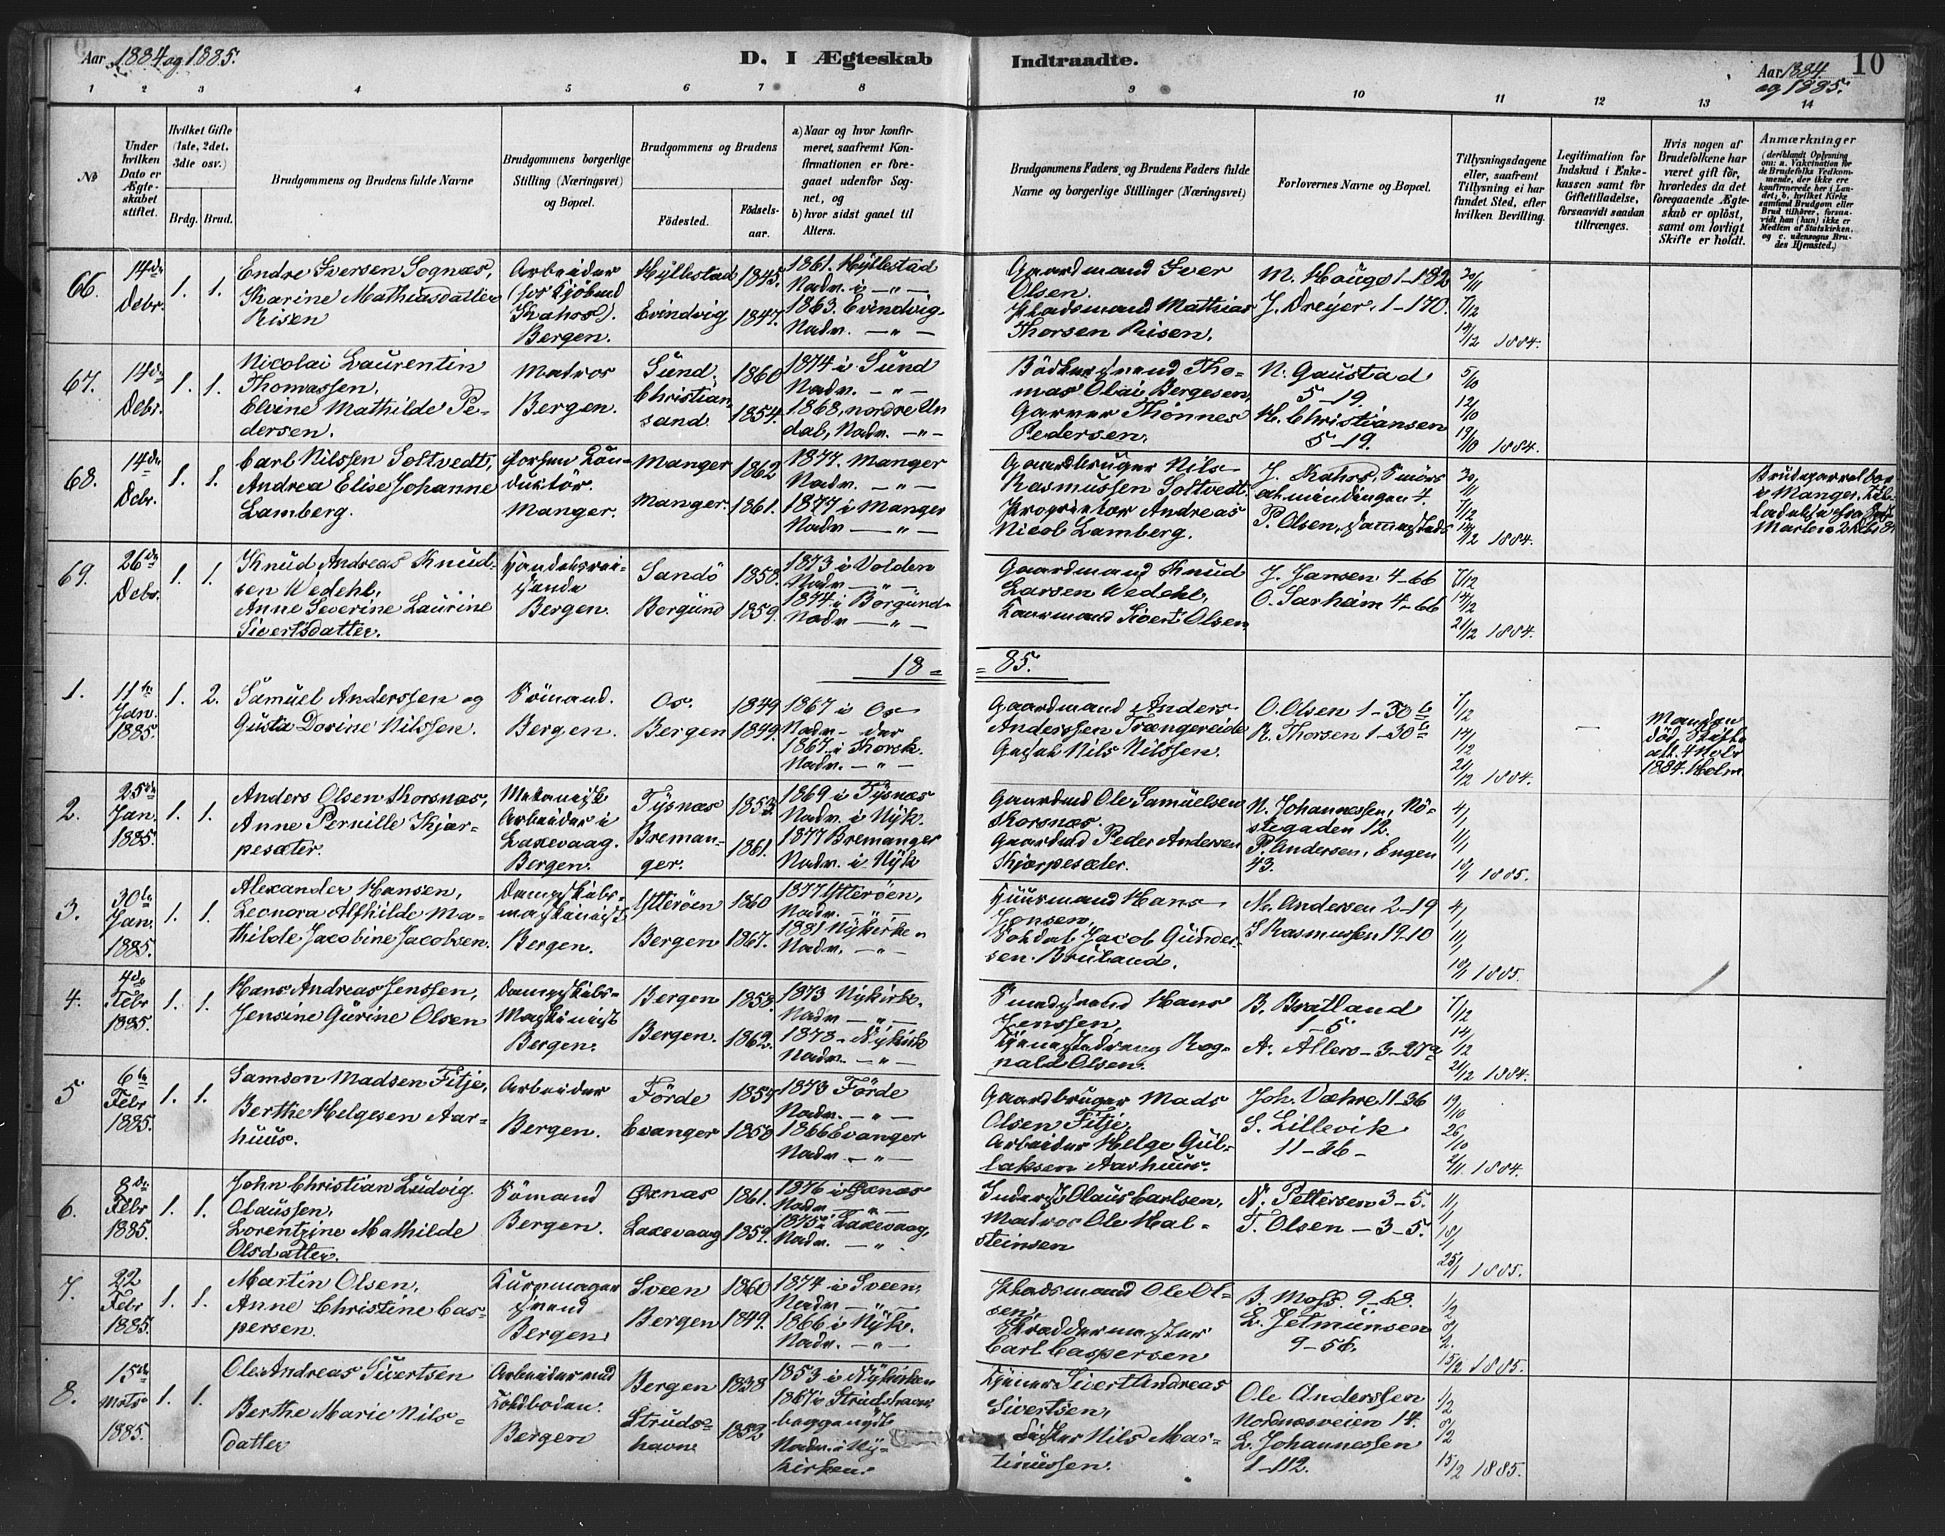 Aar 1884 og 1885.
D. I Ægteskab Indtraadte.
Aar 1884 og 1885.
10
1 2 3 4 5 6 7 8 9 10 11 12 13 14
No
Under hvilken Dato er Ægteskabet stiftet.
Hvilket Gifte (1ste, 2det, 3die osv.)
Brdg. Brud.
Brudgommens og Brudens fulde Navne
Brudgommens borgerlige Stilling (Næringsvei) og Bopæl.
Brudgommens og Brudens
Fødested.
Fødselsaar.
a) Naar og hvor konfirmeret, saafremt Konfirmationen er foregaaet udenfor Sognet, og
b) hvor sidst gaaet til Alters.
Brudgommens Faders og Brudens Faders fulde Navne og borgerlige Stillinger (Næringsvei)
Forlovernes Navne og Bopæl.
Tillysningsdagene eller, saafremt Tillysning ei har fundet Sted, efter hvilken Bevilling.
Legitimation for Indskud i Enkekassen samt for Giftetilladelse, forsaavidt saadan tiltrænges.
Hvis nogen af Brudefolkene har været gift før, hvorledes da det foregaaende Ægteskab er opløst, samt om lovligt Skifte er holdt.
Anmærkninger
66. 14de Decbr. 1. 1.
Endre Iversen Sognæs,
Karine Mathiasdatter
Risen
Arbeider
Bergen.
Hyllestad 1845.
Evindvig 1847.
1861. Hyllestad
Nadv. i — " —
1863. Evindvig.
Nadv. — " —
Gaardmand Iver
Olsen.
Pladsmand Mathias
Thorsen Risen.
M. Hauge 1-182
J. Dreyer. 1-170.
30/11
7/12
14/12 1884.
67. 14de Decbr. 1. 1.
Nicolai Laurentin
Thomassen.
Elvine Mathilde Pedersen.
Matros
Bergen.
Sund. 1860
Christiansand 1854.
1874 i Sund
Nadv. — " —
1868, nordre Undal, Nadv. — " —
Bødkersvend Thomas Olai Bergesen,
Garver Thønnes
Pedersen.
N. Gaustad
5-19.
H. Christiansen
5-19.
5/10
12/10
19/10 1884.
68. 14de Decbr. 1. 1.
Carl Nilssen Soltvedt,
Andrea Elise Johanne
Lamberg.
Manger.
Manger 1862
Manger. 1861.
1877. Manger
Nadv. — " —
1877 i Manger
Nadv. — " —
Gaardbruger Nils
Rasmussen Soltvedt.
Proprietær Andreas
Nicol. Lamberg.
P. Olsen,
30/11
7/12
14/12 1884.
69. 26de Decbr. 1. 1.
Knud Andreas Knudsen Wedehl,
Anne Severine Laurine
Sivertsdatter.
Handelsreisende
Bergen.
Sandö 1858.
Borgund 1859.
1873 i Volden
Nadv. — " —
1874 i Borgund
Nadv. — " —
Gaardmand Knud
Larsen Wedehl,
Gaardmand Sivert Olsen
J. Jansen 4-66
O. Sarheim 4-66
7/12
14/12
21/12 1884.
18 = = 85.
1. 11te Jan. 1885. 1. 2.
Samuel Anderssen og
Gusta Dorine Nilssen.
Sömand.
Bergen.
Os. 1849
Bergen 1849.
1867 i Os
Nadv. — der
Nadv. — " —
Gaardmand Anders
Anderssen Trængereide
Nils Nilssen.
O. Olsen 1-30 b
R. Thorsen 1-30 b
7/12
14/12
21/12 1884.
Manden død,
2. 25de Jan. 1885. 1. 1.
Anders Olsen Thorsnæs,
Anne Pernille Kjærpesæter.
Mekanisk
Arbeider i
Laxevaag.
Bergen.
Tysnæs 1853.
Bremanger. 1861.
1869 i Tysnæs
Nadv. i Nyk.
1877 Bremanger
Nadv. i Nyk
Gaardmd Ole Samuelsen
Thorsnæs.
Gaardmd Peder Andersen
Kjærpesæter.
N. Johannessen, Nöstegaden 12.
P. Andersen, Engen
43.
4/1
11/1
18/1 1885.
3. 30te Jan. 1885. 1. 1.
Alexander Hansen,
Leonora Alfhilde Mathilde Jacobine Jacobsen.
Dampskibsmaskinist
Bergen.
Ytterøen 1860
Bergen 1867.
1877 Ytterøen,
Nadv. — " —
1881 Nykirken
Nadv. — " —
Huusmand Hans
Jensen,
Soldat Jacob Gundersen Bruland.
M. Andersen 2-19
S Rasmussen 19-10
4/1
11/1
18/1 1885.
4. 4de Febr 1885. 1. 1.
Hans Andreas Jenssen,
Jensine Gurine Olsen
Dampskibs-
Maskinist
Bergen.
Bergen 1853.
Bergen. 1862.
1873 Nykirke.
Nadv — " —
1878 — Nykirk
Nadv. — " —
Smedsvend Hans
Jenssen,
Tjenestedreng Rognald Olsen.
B. Bratland
1-5
A. Allers - 3-27a
7/12
14/12
21/12 1884.
5 6te Febr 1885. 1. 1.
Samson Madsen Fitje,
Berthe Helgesen Aarhuus.
Arbeider
Bergen.
Förde 1857
Evanger 1858
1873 Förde
Nadv. — " —
1866 Evanger
Nadv. — " —
Gaardbruger Mads
Olsen Fitje,
Arbeider Helge Gullaksen Aarhuus.
Joh. Væhre 11-36
S. Lillevik
11-36-
19/10
26/10
2/11 1884.
6. 8de Febr 1885. 1. 1.
John Christian Ludvig
Olaussen,
Lorentzine Mathilde
Olsdatter.
Sömand
Bergen.
Øxnæs 1861.
Laxevaag 1859.
1876 i Øxnæs
Nadv. — " —
1875 i Laxevaag,
Nadv. — " —
Olaus Carlsen,
Matros Ole Halsteinsen
N. Pettersen 3-5.
T. Olsen - 3-5.
11/1
18/1
25/1 1885.
7. 22 Febr 1885. 1. 1.
Martin Olsen,
Anne Christine Caspersen.
Kurvmager
svend
Bergen
Sveen 1860
Bergen 1849.
1874 i Sveen,
Nadv. — " —
1866 i Nyk.
Nadv. — " —
Pladsmand Ole Olsen,
Skræddermester
Carl Caspersen
B. Moss. 9-68.
9-56.
1/2
8/2
15/2 1885.
8. 15de Marts 1885. 1. 1.
Ole Andreas Sivertsen
Berthe Marie Nilsdatter
Arbeider ved
Toldboden.
Bergen
Bergen 1838
Strudshavn 1852
1853 i Nykirken
1867 i Strudshavn
Nadv. i Nykirken.
Sivert Andreas
Sivertsen,
Fisker Nils Martinussen.
Ole Anderssen
Nordnæsveien 14.
E. Johannessen
1-112.
1/2
8/2
15/2 1885.